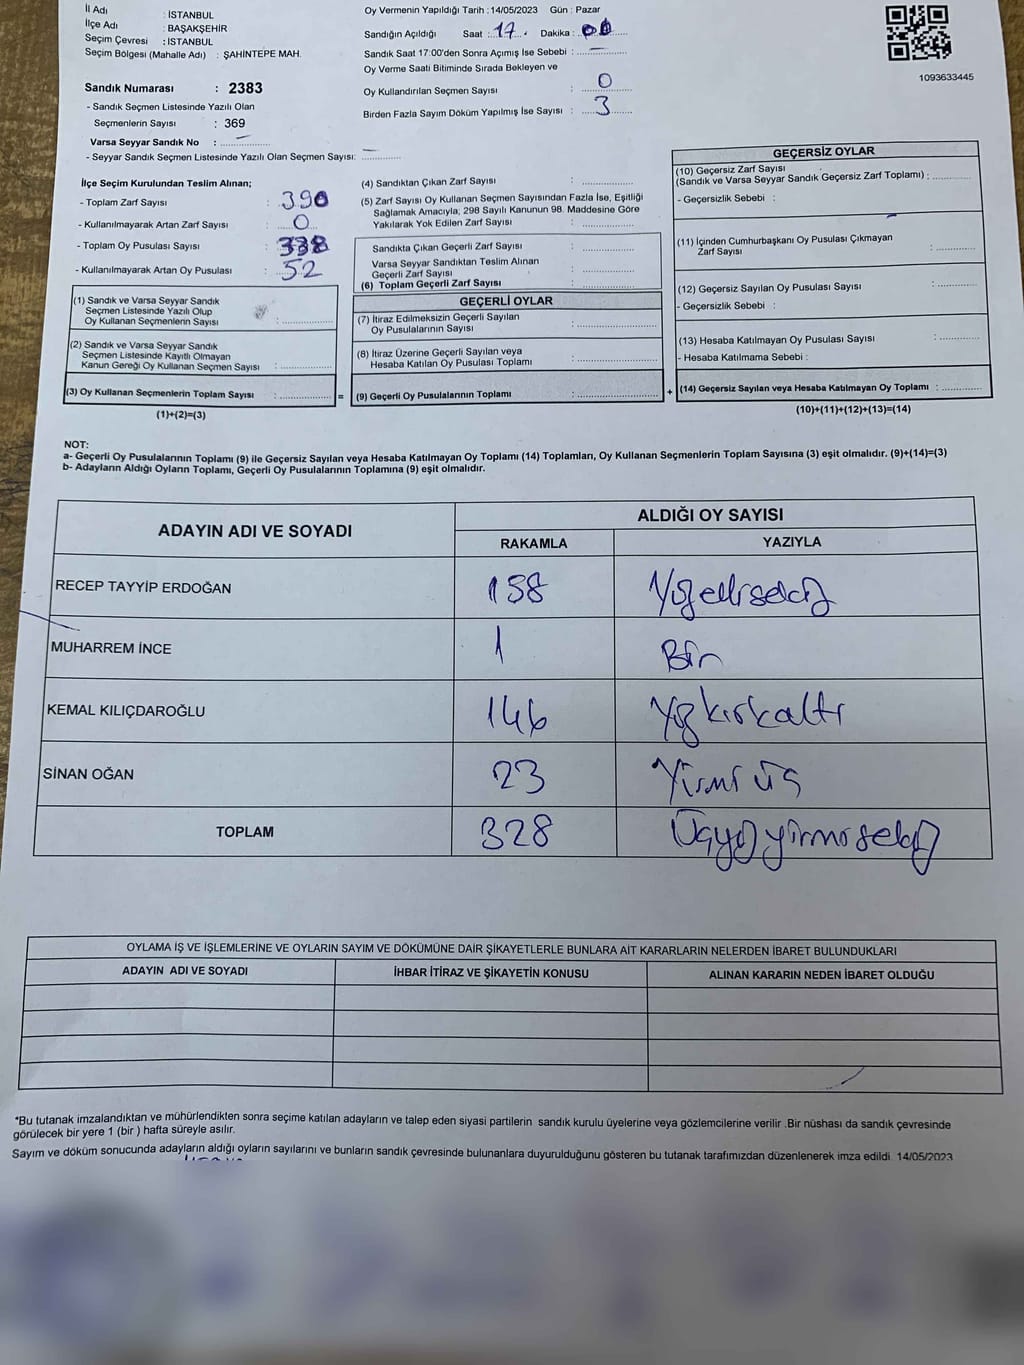 İl Adı : İSTANBUL
İlçe Adı : BAŞAKŞEHİR
Seçim Çevresi : İSTANBUL
Seçim Bölgesi (Mahalle Adı) : ŞAHİNTEPE MAH.
Sandık Numarası : 2383
- Sandık Seçmen Listesinde Yazılı Olan
Seçmenlerin Sayısı : 369
Varsa Seyyar Sandık No :
- Seyyar Sandık Seçmen Listesinde Yazılı Olan Seçmen Sayısı:
Oy Vermenin Yapıldığı Tarih : 14/05/2023 Gün : Pazar
Sandığın Açıldığı Saat : 17 Dakika : 00
Sandık Saat 17:00'den Sonra Açımış İse Sebebi :
Oy Verme Saati Bitiminde Sırada Bekleyen ve
Oy Kullandırılan Seçmen Sayısı : 0
Birden Fazla Sayım Döküm Yapılmış İse Sayısı : 3
1093633445
İlçe Seçim Kurulundan Teslim Alınan;
- Toplam Zarf Sayısı : 390
- Kullanılmayarak Artan Zarf Sayısı : 0
- Toplam Oy Pusulası Sayısı :
- Kullanılmayarak Artan Oy Pusulası : 52
(1) Sandık ve Varsa Seyyar Sandık
Seçmen Listesinde Yazılı Olup
Oy Kullanan Seçmenlerin Sayısı :
(2) Sandık ve Varsa Seyyar Sandık
Seçmen Listesinde Kayıtlı Olmayan
Kanun Gereği Oy Kullanan Seçmen Sayısı :
(3) Oy Kullanan Seçmenlerin Toplam Sayısı :
(1)+(2)=(3)
=
(4) Sandıktan Çıkan Zarf Sayısı :
(5) Zarf Sayısı Oy Kullanan Seçmen Sayısından Fazla İse, Eşitliği
Sağlamak Amacıyla; 298 Sayılı Kanunun 98. Maddesine Göre
Yakılarak Yok Edilen Zarf Sayısı :
Sandıkta Çıkan Geçerli Zarf Sayısı :
Varsa Seyyar Sandıktan Teslim Alınan
Geçerli Zarf Sayısı :
(6) Toplam Geçerli Zarf Sayısı :
GEÇERLİ OYLAR
(7) İtiraz Edilmeksizin Geçerli Sayılan
Oy Pusulalarının Sayısı :
(8) İtiraz Üzerine Geçerli Sayılan veya
Hesaba Katılan Oy Pusulası Toplamı :
(9) Geçerli Oy Pusulalarının Toplamı :
+
GEÇERSİZ OYLAR
(10) Geçersiz Zarf Sayısı
(Sandık ve Varsa Seyyar Sandık Geçersiz Zarf Toplamı) :
- Geçersizlik Sebebi :
(11) İçinden Cumhurbaşkanı Oy Pusulası Çıkmayan
Zarf Sayısı :
(12) Geçersiz Sayılan Oy Pusulası Sayısı :
- Geçersizlik Sebebi :
(13) Hesaba Katılmayan Oy Pusulası Sayısı :
- Hesaba Katılmama Sebebi :
(14) Geçersiz Sayılan veya Hesaba Katılmayan Oy Toplamı :
(10)+(11)+(12)+(13)=(14)
NOT:
a- Geçerli Oy Pusulalarının Toplamı (9) ile Geçersiz Sayılan veya Hesaba Katılmayan Oy Toplamı (14) Toplamları, Oy Kullanan Seçmenlerin Toplam Sayısına (3) eşit olmalıdır. (9)+(14)=(3)
b- Adayların Aldığı Oyların Toplamı, Geçerli Oy Pusulalarının Toplamına (9) eşit olmalıdır.
ADAYIN ADI VE SOYADI ALDIĞI OY SAYISI
RAKAMLA YAZIYLA
RECEP TAYYİP ERDOĞAN 158 Yüzellisekiz
MUHARREM İNCE 1 Bir
KEMAL KILIÇDAROĞLU 146 Yüzkırkaltı
SİNAN OĞAN 23 Yirmi üç
TOPLAM 328 Üçyüzyirmisekiz
OYLAMA İŞ VE İŞLEMLERİNE VE OYLARIN SAYIM VE DÖKÜMÜNE DAİR ŞİKAYETLERLE BUNLARA AİT KARARLARIN NELERDEN İBARET BULUNDUKLARI
ADAYIN ADI VE SOYADI İHBAR İTİRAZ VE ŞİKAYETİN KONUSU ALINAN KARARIN NEDEN İBARET OLDUĞU
*Bu tutanak imzalandıktan ve mühürlendikten sonra seçime katılan adayların ve talep eden siyasi partilerin sandık kurulu üyelerine veya gözlemcilerine verilir .Bir nüshası da sandık çevresinde
görülecek bir yere 1 (bir ) hafta süreyle asılır.
Sayım ve döküm sonucunda adayların aldığı oyların sayılarını ve bunların sandık çevresinde bulunanlara duyurulduğunu gösteren bu tutanak tarafımızdan düzenlenerek imza edildi. 14/05/2023